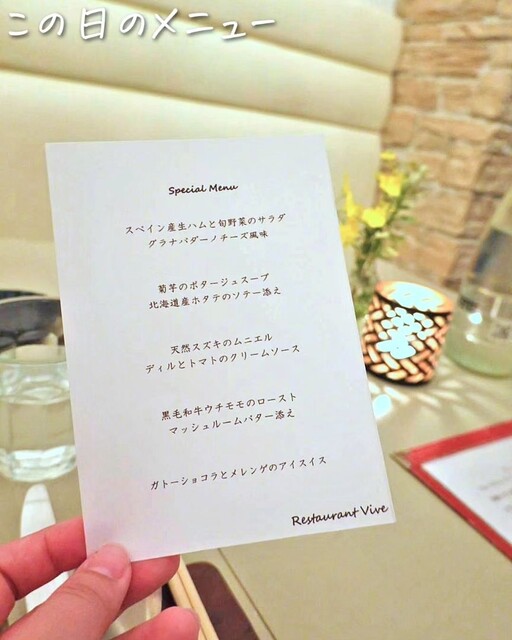 この日のメニュー
Special Menu
スペイン産生ハムと旬野菜のサラダ
グラナパダーノチーズ風味
菊芋のポタージュスープ
北海道産ホタテのソテー添え
天然スズキのムニエル
ディルとトマトのクリームソース
黒毛和牛ウチモモのロースト
マッシュルームバター添え
ガトーショコラとメレンゲのアイスイス
Restaurant Vive